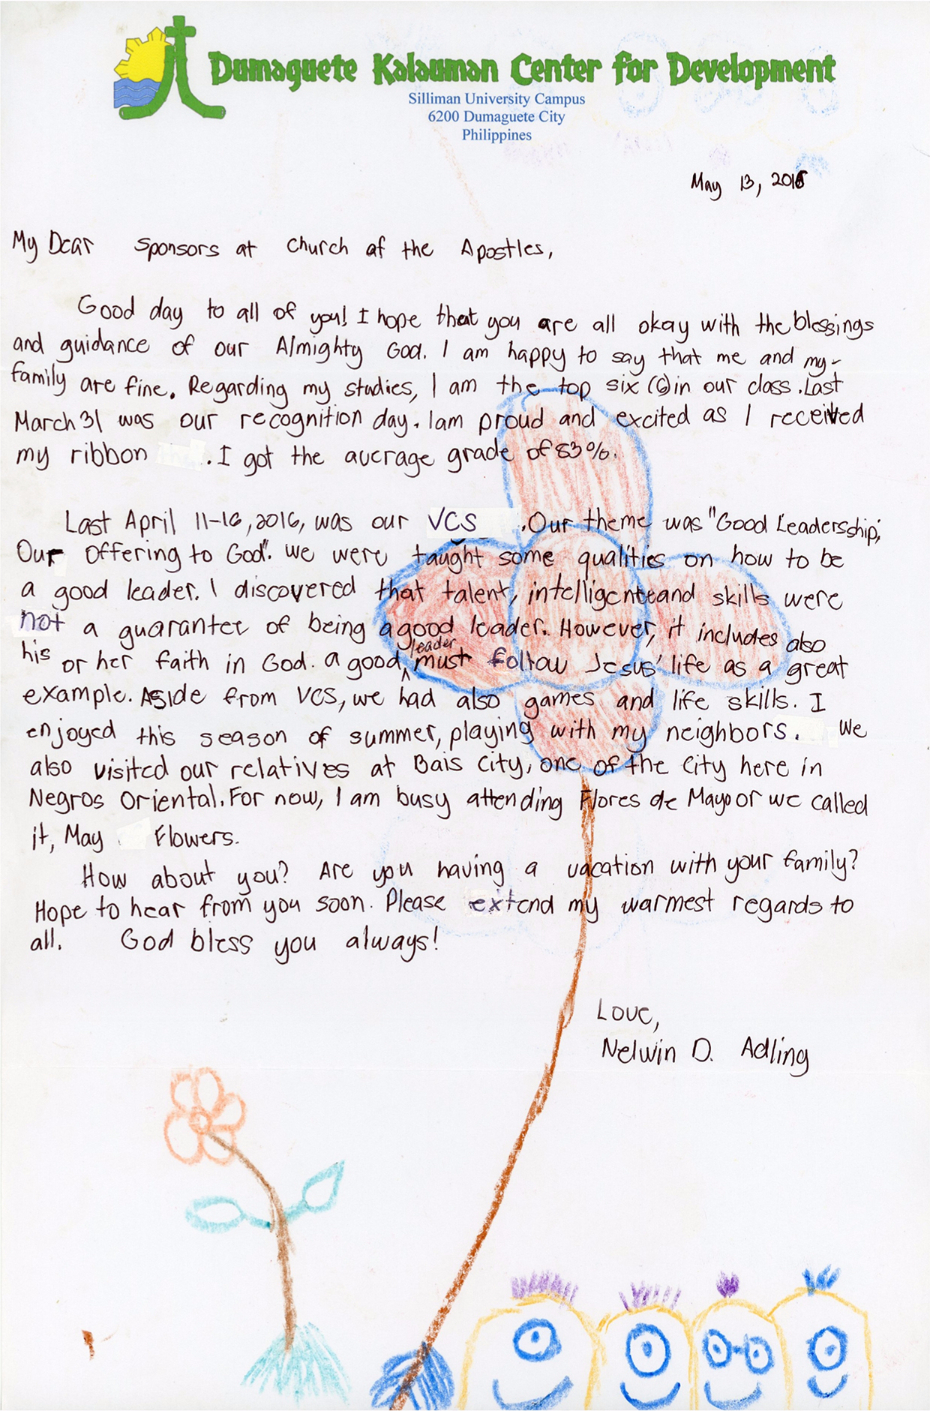 Dumaguete Kalauman Center for Development
Silliman University Campus
6200 Dumaguete City
Philippines
May 13, 2016
My Dear Sponsors at Church of the Apostles,
Good day to all of you! I hope that you are all okay with the blessings
and guidance of our Almighty God. I am happy to say that me and my
family are fine. Regarding my studies, I am the top six (6) in our class. Last
March 31 was our recognition day. Iam proud and excited as I received
my ribbon . I got the average grade of 83%.
Last April 11-16, 2016, was our VCS . Our theme was "Good Leadership,
Our offering to God". We were taught some qualities on how to be
a good leader. I discovered that talent, intelligente and skills were
not a guarantee of being a good leader. However, it includes also
his or her faith in God. a good leader must follow Jesus' life as a great
example. Aside from VCS, we had also games and life skills. I
enjoyed this season of summer, playing with my neighbors. We
also visited our relatives at Bais City, one of the City here in
Negros Oriental. For now, I am busy attending Flores de Mayo or we called
it, May Flowers.
How about you? Are you having a vacation with your family?
Hope to hear from you soon. Please extend my warmest regards to
all. God bless you always!
Love,
Nelwin D. Adling